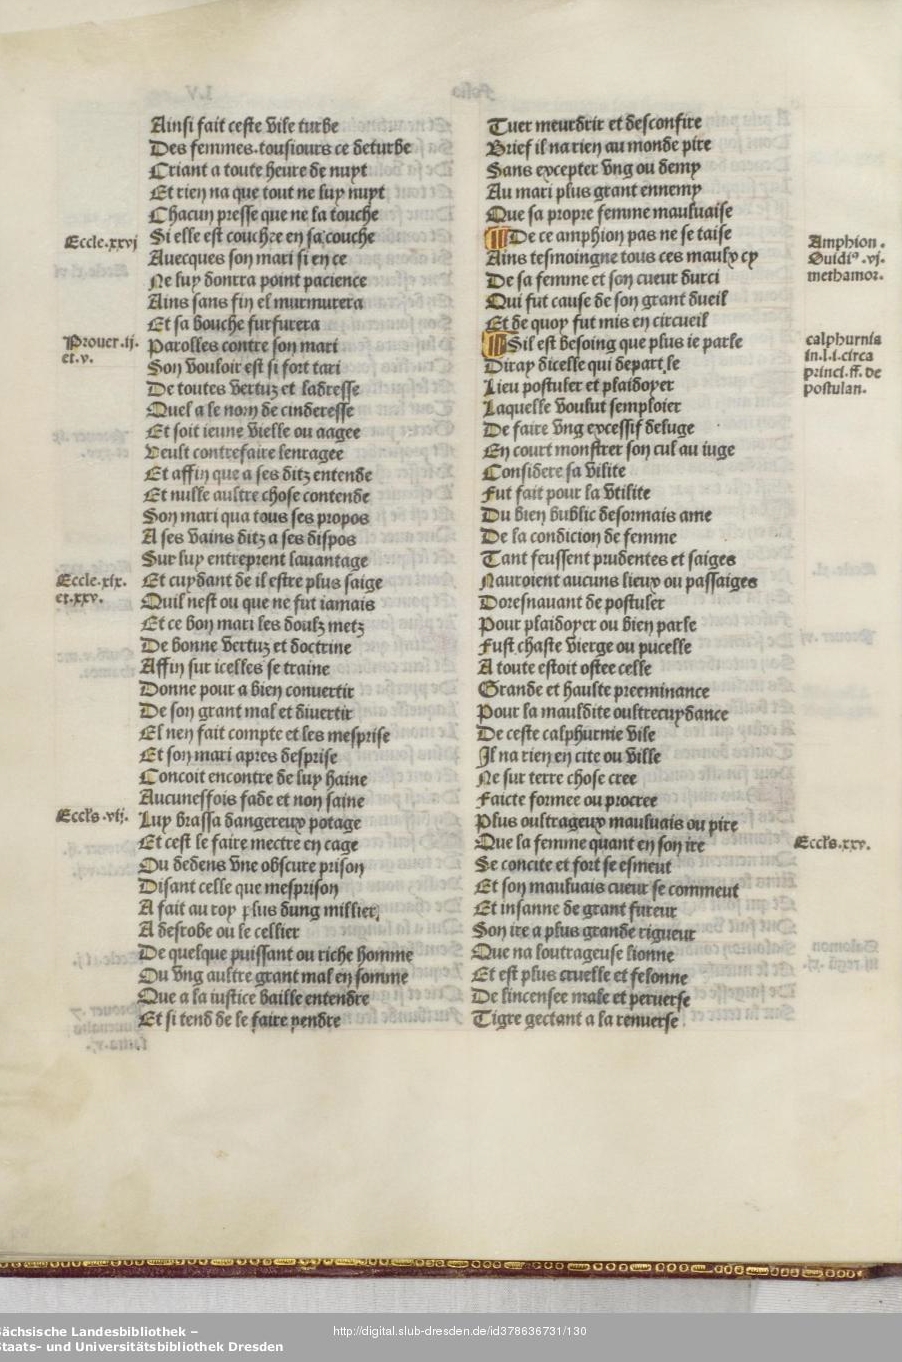 Ainsi fait ceste vile turbe
Des femmes.tousiours ce deturbe
Criant a toute heure de nuyt
Et rien na que tout ne luy nuyt
Chacun presse que ne la touche
Eccle.xxvj
Si elle est couchee en sa couche
Auecques son mari si en ce
Ne luy donrra point pacience
Ains sans fin el murmurera
Et sa bouche furfurera
Prouer.ij.
et.v.
Parolles contre son mari
Son vouloir est si fort tari
De toutes vertuz et ladresse
Quel a le nom de cinderesse
Et soit ieune vielle ou aagee
Veult contrefaire lenragee
Et affin que a ses ditz entende
Et nulle aultre chose contende
Son mari qua tous ses propos
A ses vains ditz a ses dispos
Sur luy entreprent lauantage
Eccle.xix.
et.xxv.
Et cuydant de il estre plus saige
Quil nest ou que ne fut iamais
Et ce bon mari les doulz metz
De bonne vertuz et doctrine
Affin sur icelles se traine
Donne pour a bien conuertir
De son grant mal et diuertir
El nen fait compte et les mesprise
Et son mari apres desprise
Concoit encontre de luy haine
Aucuneffois fade et non saine
Eccls.vij.
Luy brassa dangereux potage
Et cest le faire mectre en cage
Ou dedens vne obscure prison
Disant celle que mesprison
A fait au roy plus dung millier
A desrobe ou le cellier
De quelque puissant ou riche homme
Ou vng aultre grant mal en somme
Que a la iustice baille entendre
Et si tend de le faire pendre
Tuer meurdrir et desconfire
Brief il na rien au monde pire
Sans excepter vng ou demy
Au mari plus grant ennemy
Que sa propre femme mauluaise
De ce amphion pas ne se taise
Amphion.
Ouidi⁹.vj.
methamor.
Ains tesmoingne tous ces maulx cy
De sa femme et son cueur durci
Qui fut cause de son grant dueil
Et de quoy fut mis en circueil
Sil est besoing que plus ie parle
calphurnia
in.l.i.circa
princi.ff.de
postulan.
Diray dicelle qui depart le
Lieu postuler et plaidoyer
Laquelle voulut semploier
De faire vng excessif deluge
En court monstrer son cul au iuge
Considere sa vilite
Fut fait pour la vtilite
Du bien bublic desormais ame
De la condicion de femme
Tant feussent prudentes et saiges
Nauroient aucuns lieux ou passaiges
Doresnauant de postuler
Pour plaidoyer ou bien parle
Fust chaste vierge ou pucelle
A toute estoit ostee celle
Grande et haulte preeminance
Pour la mauldite oultrecuydance
De ceste calphurnie vile
Il na rien en cite ou ville
Ne sur terre chose cree
Faicte formee ou procree
Plus oultrageux mauluais ou pire
Que la femme quant en son ire
Eccls.xxv.
Se concite et fort se esmeut
Et son mauluais cueur se commeut
Et insanne de grant fureur
Son ire a plus grande rigueur
Que na loutrageuse lionne
Et est plus cruelle et felonne
De lincensee male et peruerse
Tigre gectant a la renuerse
Sächsische Landesbibliothek –
Staats- und Universitätsbibliothek Dresden
http://digital.slub-dresden.de/id378636731/130